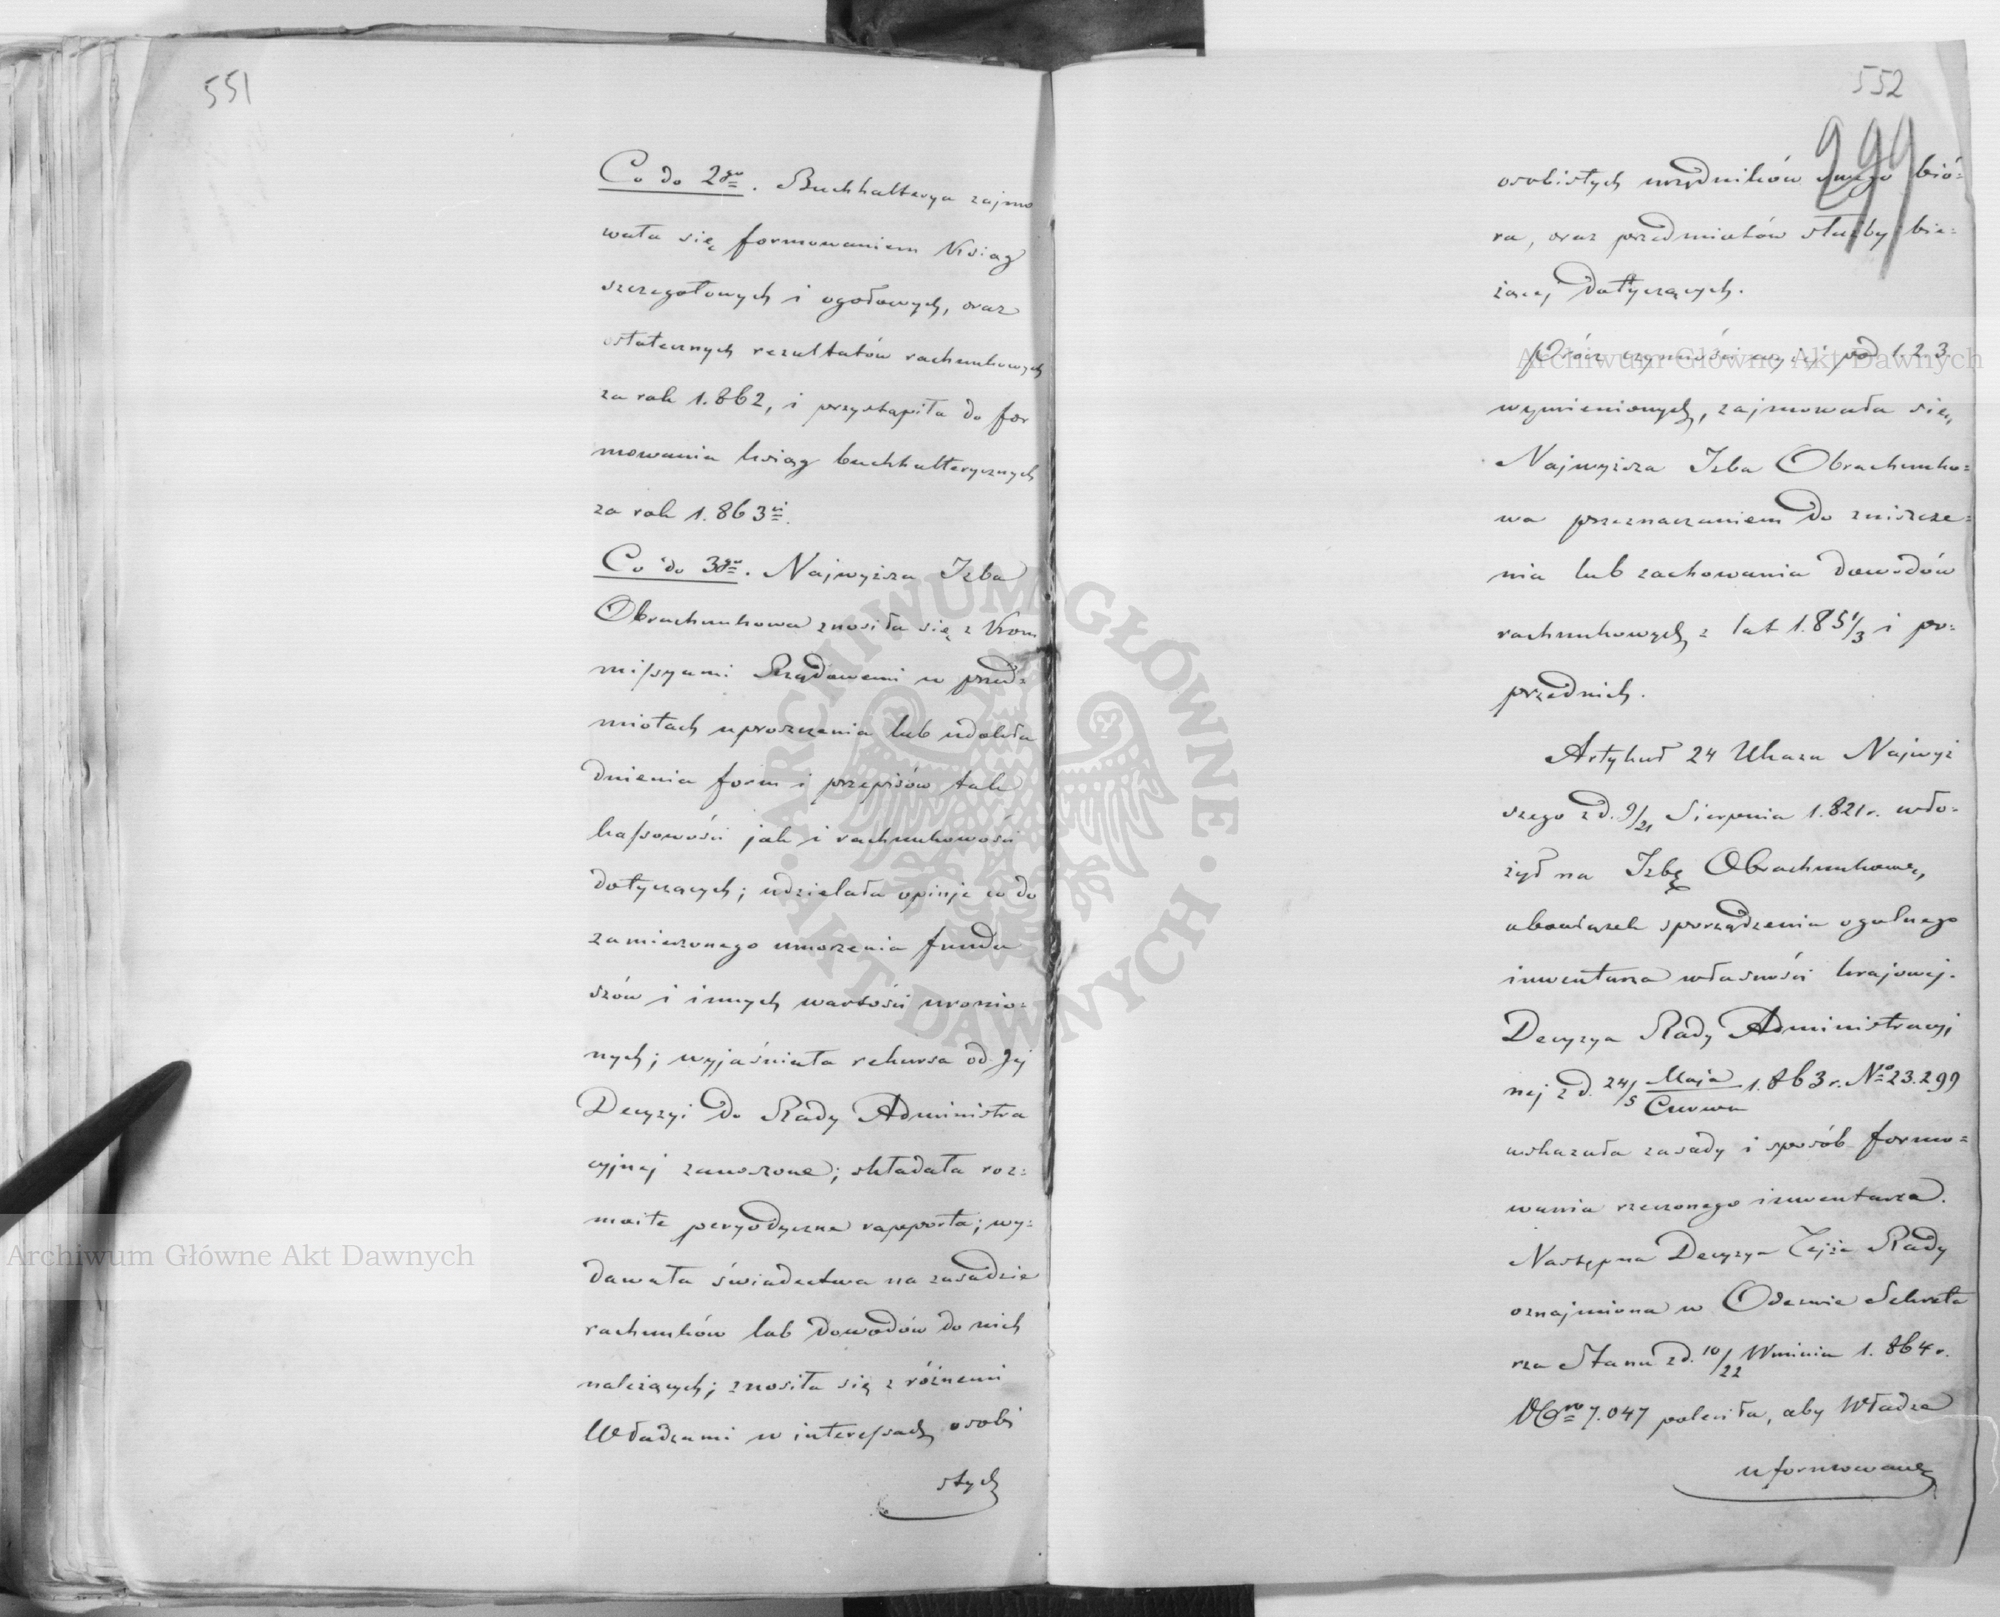 551
Co do 2go. Buchhalterya zajmo
wała się formowaniem Ksiąg
szczegołowych i ogołowych, oraz
ostatecznych rezultatów rachunkowych
za rok 1.862, i przystąpiła do for
mowania ksiąg buchhalterycznych
za rok 1.863ci.
Co do 3go. Najwyższa Izba
Obrachunkowa znosiła się z Kom
missyami Rządowemi w przed-
miotach uproszczenia lub udokła
dnienia form i przepisów tak
kassowości jak i rachunkowości
dotyczących; udzielała opinje co do
zamierzonego umorzenia fundu
szów i innych wartości uronio-
nych; wyjaśniała rekursa od Jej
Decyzyi do Rady Administra
cyjnej zanoszone; składała roz-
maite peryodyczne rapporta; wy-
dawała świadectwa na zasadzie
rachunków lub dowodów do nich
należących; znosiła się z różnemi
Władzami w interessach osobi
stych
552
299
osobistych urzędników swego bió-
ra, oraz przedmiotów służby bie-
żącej dotyczących.
Prócz czynności wyżej pod 1.2.3.
wymienionych, zajmowała się,
Najwyższa Izba Obrachunko-
wa przeznaczaniem do zniszcze-
nia lub zachowania dowodów
rachunkowych z lat 1.851/3 i po-
przednich.
Artykuł 24 Ukazu Najwyż
szego z d. 9/21 Sierpnia 1.821 r. wło-
żył na Izbę Obrachunkową,
obowiązek sporządzenia ogólnego
inwentarza własności krajowej.
Decyzya Rady Administracyj
nej z d. 24/5 Maja/Czerwca 1.863 r. No 23.299
wskazała zasady i sposób formo-
wania rzeczonego inwentarza.
Następna Decyzya Tejże Rady
oznajmiona w Odezwie Sekreta
rza Stanu z d. 10/22 Września 1.864 r.
No 7.047 poleciła, aby Władze
uformowane
Archiwum Główne Akt Dawnych
Archiwum Główne Akt Dawnych
ARCHIWUM GŁÓWNE · AKT DAWNYCH · W